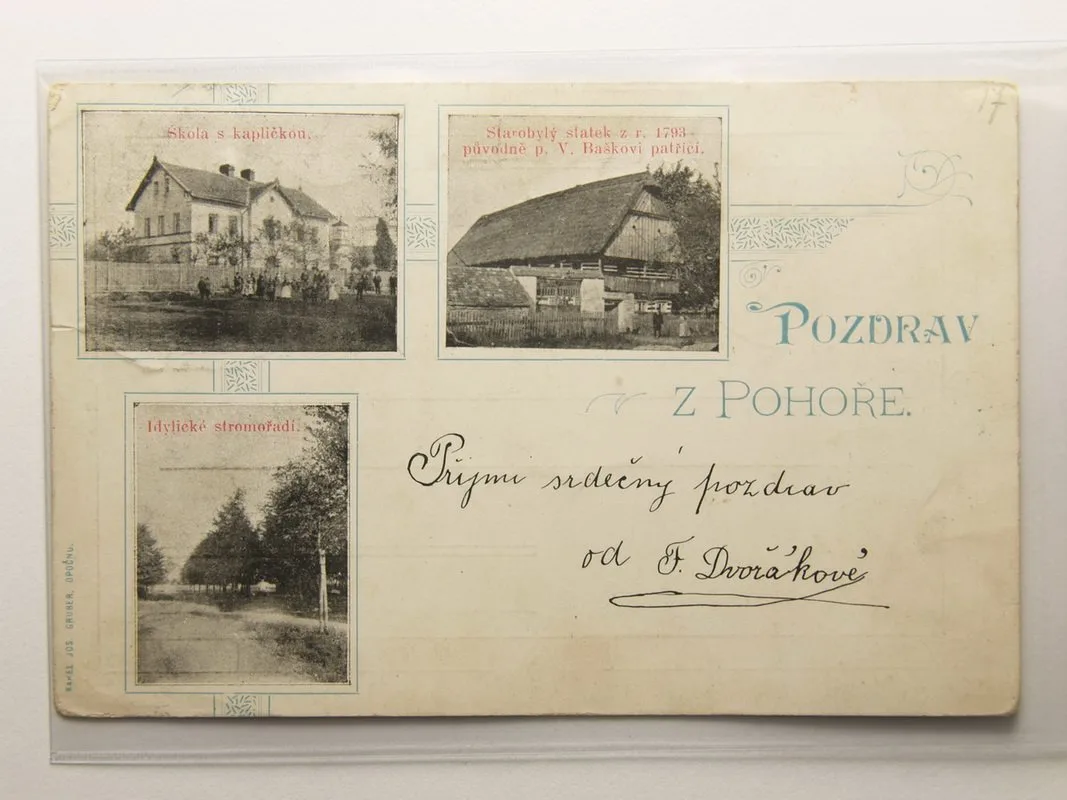 17
Škola s kapličkou.
Starobylý statek z r. 1793
původně p. V. Baškovi patřící.
Pozdrav
z Pohoře.
Idylické stromořadí.
Přijmi srdečný pozdrav
od F. Dvořákové
JOS. GRUBER, OPOČNO.